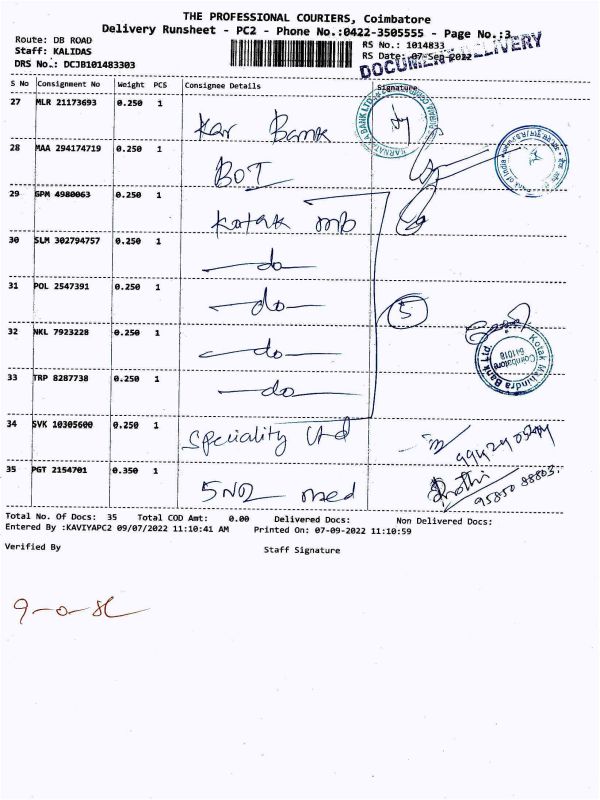 THE PROFESSIONAL COURIERS, Coimbatore
Delivery Runsheet - PC2 - Phone No.:0422-3505555 - Page No.:3
Route: DB ROAD
RS No.: 1014833
Staff: KALIDAS
RS Date: 07-Sep-2022
DRS No.: DCJB101483303
DOCUMENT DELIVERY
S No Consignment No Weight PCS Consignee Details Signature
27 MLR 21173693 0.250 1
Kar Bank
28 MAA 294174719 0.250 1
BOI
29 GPM 4980063 0.250 1
Kotak mb
30 SLM 302794757 0.250 1
do
31 POL 2547391 0.250 1
do
5
32 NKL 7923228 0.250 1
do
Kotak Mahindra Bank Ltd.
Coimbatore
641018
33 TRP 8287738 0.250 1
do
34 SVK 10305600 0.250 1
Speciality Ltd
35 PGT 2154701 0.350 1
95850 88803
Total No. Of Docs: 35 Total COD Amt: 0.00 Delivered Docs: Non Delivered Docs:
Entered By :KAVIYAPC2 09/07/2022 11:10:41 AM Printed On: 07-09-2022 11:10:59
Verified By Staff Signature